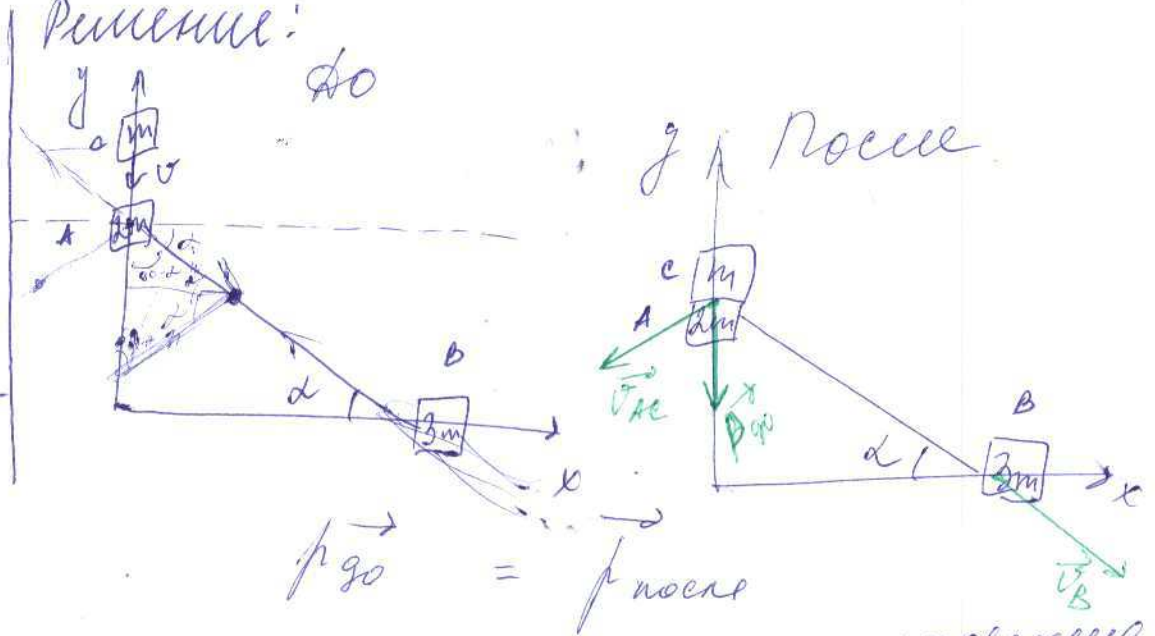 Решение:
До
y
C
m
v
2m
A
α
90-α
α
B
3m
x
После
y
C
m
A
2m
v_AC
p_до
B
α
3m
x
v_B
p_до = p_после